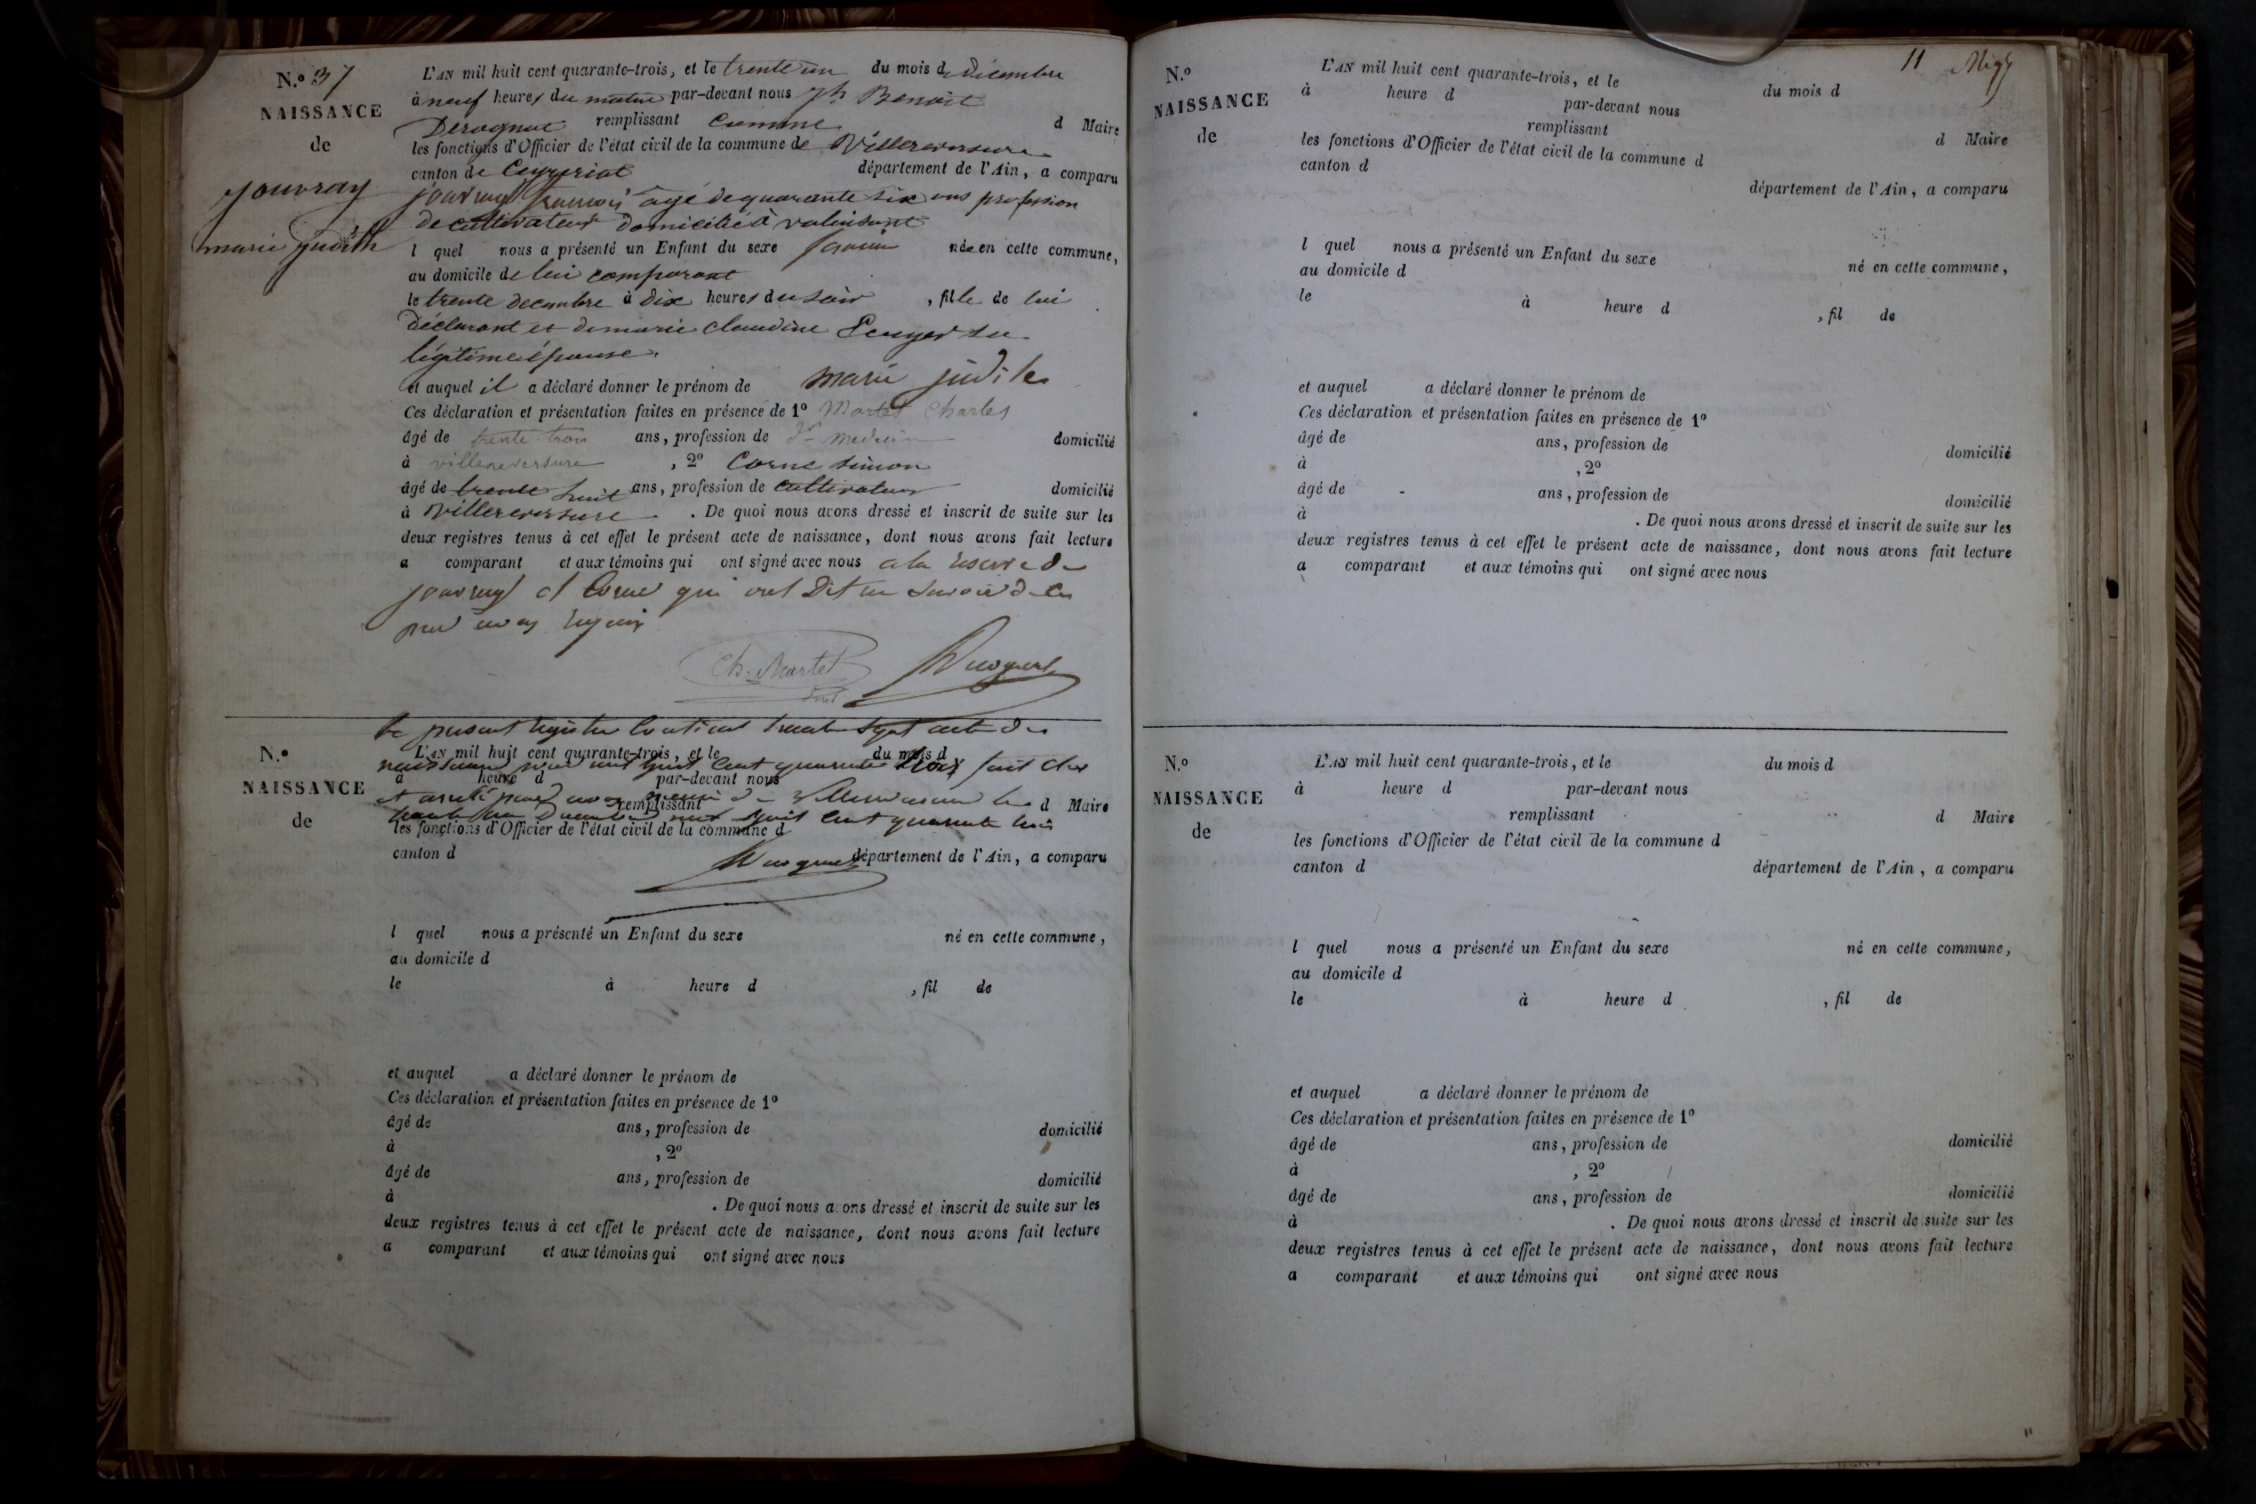 N.º 37
NAISSANCE
de
jouvray
marie judith
L'AN mil huit cent quarante-trois, et le trente un du mois de décembre
à neuf heures du matin par-devant nous jh Benoit
Derognat remplissant comme d Maire
les fonctions d'Officier de l'état civil de la commune de Villereversure
canton de Ceyzeriat département de l'Ain, a comparu
jouvray françois âgé de quarante six ans profession
de cultivateur domicilié à
l quel nous a présenté un Enfant du sexe née en cette commune,
au domicile de lui comparant
le trente decembre à dix heures du soir , fille de lui
déclarant et de marie claudine sa
légitime épouse.
et auquel il a déclaré donner le prénom de marie judith
Ces déclaration et présentation faites en présence de 1º Martel Charles
âgé de trente trois ans, profession de dr medecin domicilié
à villereversure , 2º Corne simon
âgé de trente huit ans, profession de cultivateur domicilié
à Villereversure . De quoi nous avons dressé et inscrit de suite sur les
deux registres tenus à cet effet le présent acte de naissance, dont nous avons fait lecture
a comparant et aux témoins qui ont signé avec nous a la réserve de
jouvray et Corne qui ont dit ne savoir de ce
par nous requis
Ch. Martel
Derognat
le present registre contient trente sept acte de
N.º
NAISSANCE
de
L'AN mil huit cent quarante-trois, et le du mois d
naissance pour mil huit cent quarante trois fait clos
à heure d par-devant nous
et arrêté par nous maire de Villereversure le
remplissant d Maire
trente un decembre mil huit cent quarante trois
les fonctions d'Officier de l'état civil de la commune d
canton d département de l'Ain, a comparu
Derognat
l quel nous a présenté un Enfant du sexe né en cette commune,
au domicile d
le à heure d , fil de
et auquel a déclaré donner le prénom de
Ces déclaration et présentation faites en présence de 1º
âgé de ans, profession de domicilié
à , 2º
âgé de ans, profession de domicilié
à . De quoi nous avons dressé et inscrit de suite sur les
deux registres tenus à cet effet le présent acte de naissance, dont nous avons fait lecture
a comparant et aux témoins qui ont signé avec nous
11
N.º
NAISSANCE
de
L'AN mil huit cent quarante-trois, et le du mois d
à heure d par-devant nous
remplissant d Maire
les fonctions d'Officier de l'état civil de la commune d
canton d département de l'Ain, a comparu
l quel nous a présenté un Enfant du sexe né en cette commune,
au domicile d
le à heure d , fil de
et auquel a déclaré donner le prénom de
Ces déclaration et présentation faites en présence de 1º
âgé de ans, profession de domicilié
à , 2º
âgé de ans, profession de domicilié
à . De quoi nous avons dressé et inscrit de suite sur les
deux registres tenus à cet effet le présent acte de naissance, dont nous avons fait lecture
a comparant et aux témoins qui ont signé avec nous
N.º
NAISSANCE
de
L'AN mil huit cent quarante-trois, et le du mois d
à heure d par-devant nous
remplissant d Maire
les fonctions d'Officier de l'état civil de la commune d
canton d département de l'Ain, a comparu
l quel nous a présenté un Enfant du sexe né en cette commune,
au domicile d
le à heure d , fil de
et auquel a déclaré donner le prénom de
Ces déclaration et présentation faites en présence de 1º
âgé de ans, profession de domicilié
à , 2º
âgé de ans, profession de domicilié
à . De quoi nous avons dressé et inscrit de suite sur les
deux registres tenus à cet effet le présent acte de naissance, dont nous avons fait lecture
a comparant et aux témoins qui ont signé avec nous